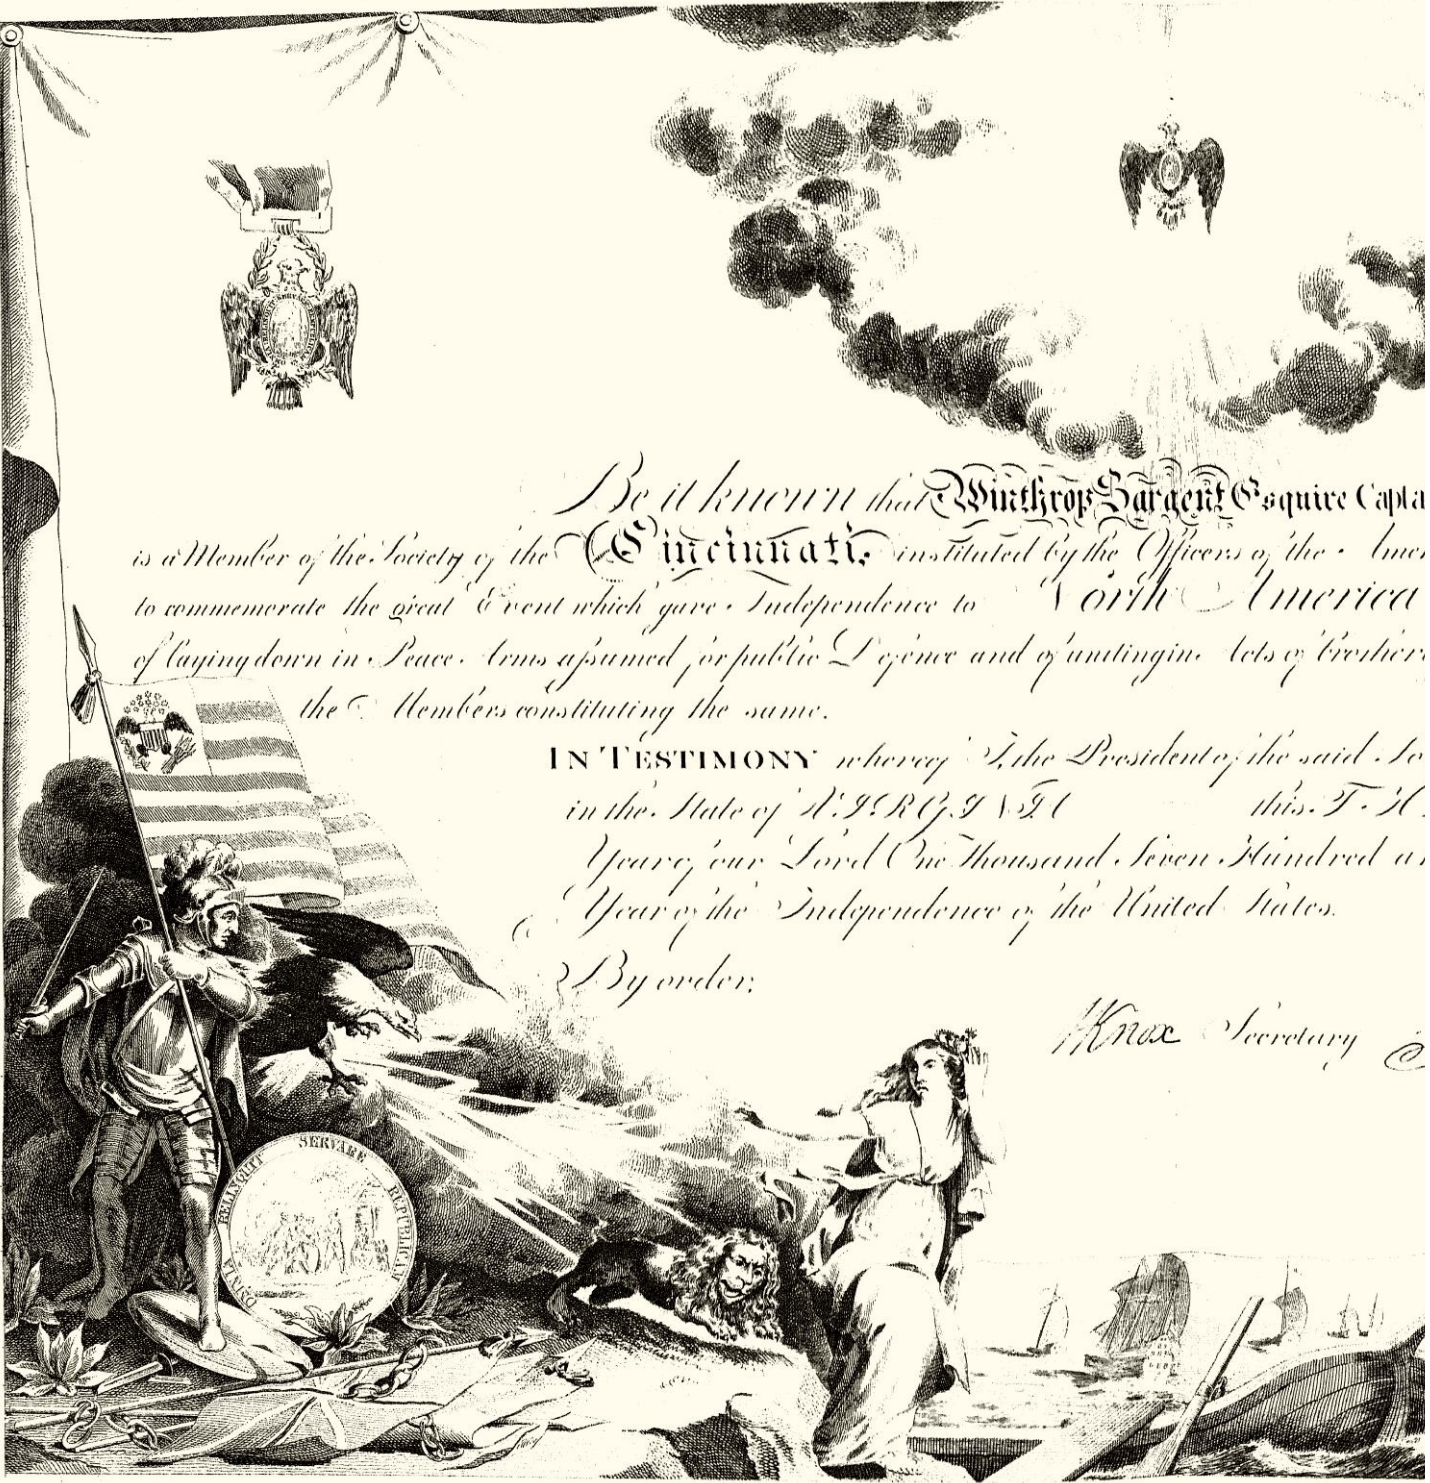 Be it known that Winthrop Sargent Esquire Capta
is a Member of the Society of the Cincinnati, instituted by the Officers of the Amer
to commemorate the great Event which gave Independence to North America
of laying down in Peace Arms assumed for public Defence and of uniting in Acts of brotherl
the Members constituting the same.
IN TESTIMONY whereof I, the President of the said So
in the State of VIRGINIA this
Year of our Lord One Thousand Seven Hundred an
Year of the Independence of the United States.
By order,
HKnox Secretary
OMNIA RELINQUIT SERVARE REPUBLICAM